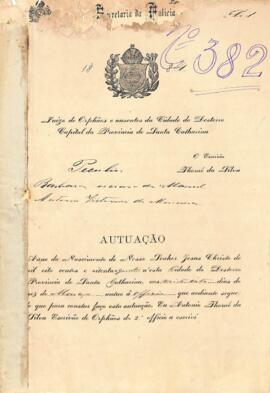 Secretaria da Policia
Fl. 1
Nº 382
18 84
Juizo de Orphãos e ausentes da Cidade do Desterro
Capital da Provincia de Santa Catharina
O Escrivão
Peculio Thomé da Silva
Barbara escrava de Manoel
Antonio
AUTUAÇÃO
Anno do Nascimento de Nosso Senhor Jesus Christo de
mil oito centos e oitenta n'esta Cidade do Desterro
Provincia de Santa Catharina, aos dias do
mez de Março autuo o Officio que adiante segue
e que para constar faço esta autuação. Eu Antonio Thomé da
Silva Escrivão de Orphãos do 2º officio a escrivi